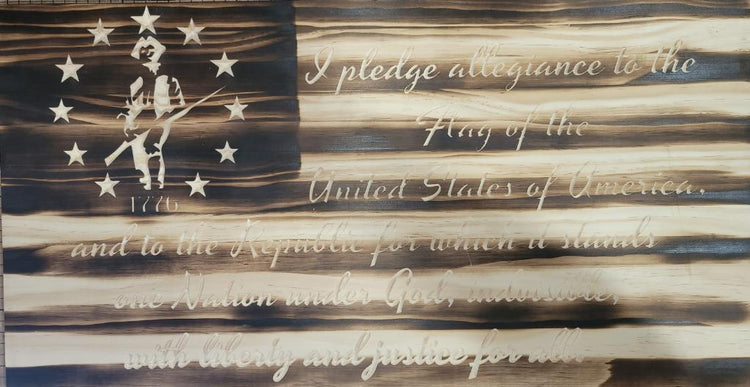 I pledge allegiance to the
Flag of the
United States of America,
and to the Republic for which it stands
one Nation under God, indivisible,
with liberty and justice for all.
1776